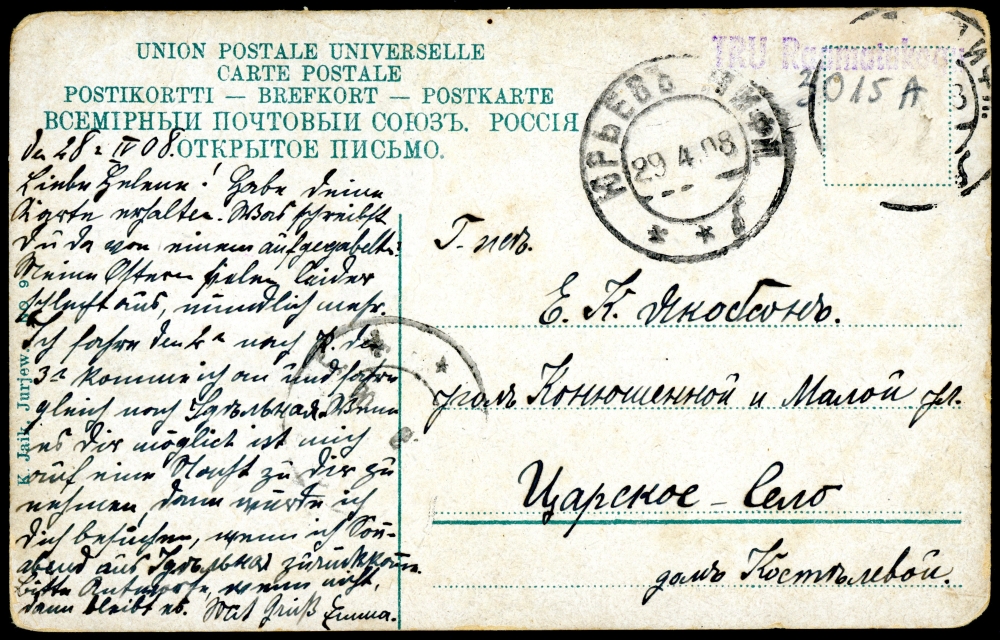 UNION POSTALE UNIVERSELLE
CARTE POSTALE
POSTIKORTTI — BREFKORT — POSTKARTE
ВСЕМІРНЫЙ ПОЧТОВЫЙ СОЮЗЪ. РОССІЯ
ОТКРЫТОЕ ПИСЬМО.
TRÜ Raamatukogu
3015 A
ЮРЬЕВЪ ЛИФЛ
29.4.08
Den 28. IV 08.
Liebe Helene! Habe deine
Karte erhalten. Was schreibst
du da von einem aufgegabelt?
Meine Ostern fielen leider
schlecht aus, mündlich mehr.
Ich fahre den 2n nach P. den
3n komme ich an und fahre
gleich nach Удѣльная. Wenn
es dir möglich ist mich
auf eine Nacht zu dir zu
nehmen, dann würde ich
dich besuchen, wenn ich Son-
abend aus Удѣльная zurückkomme.
Bitte Antworte, wenn nicht,
dann bleibt es. Mit Gruß Emma.
K. Jaik, Jurjew
Г-жѣ
Е. К. Якобсонъ.
уголъ Конюшенной и Малой ул.
Царское-Село
домъ Костылевой.